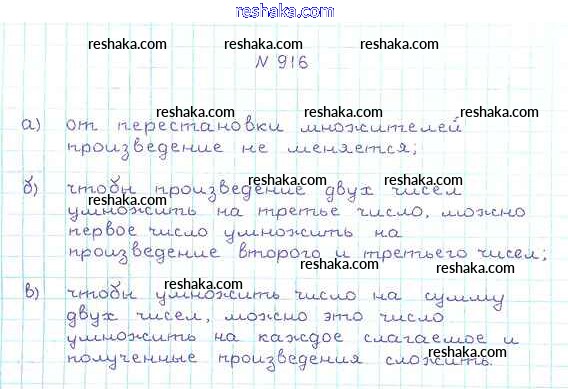 reshaka.com
reshaka.com reshaka.com
N 916
reshaka.com reshaka.com
а) от перестановки множителей
произведение не меняется;
reshaka.com reshaka.com
б) чтобы произведение двух чисел
reshaka.com
умножить на третье число, можно
первое число умножить на
reshaka.com
произведение второго и третьего чисел;
reshaka.com reshaka.com
в) чтобы умножить число на сумму
двух чисел, можно это число
reshaka.com
умножить на каждое слагаемое и
reshaka.com reshaka.com
полученные произведения сложить.